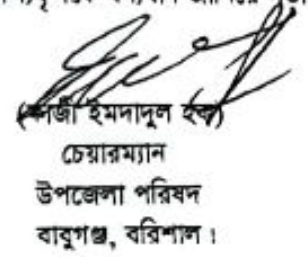 (কাজী ইমদাদুল হক)
চেয়ারম্যান
উপজেলা পরিষদ
বাবুগঞ্জ, বরিশাল।